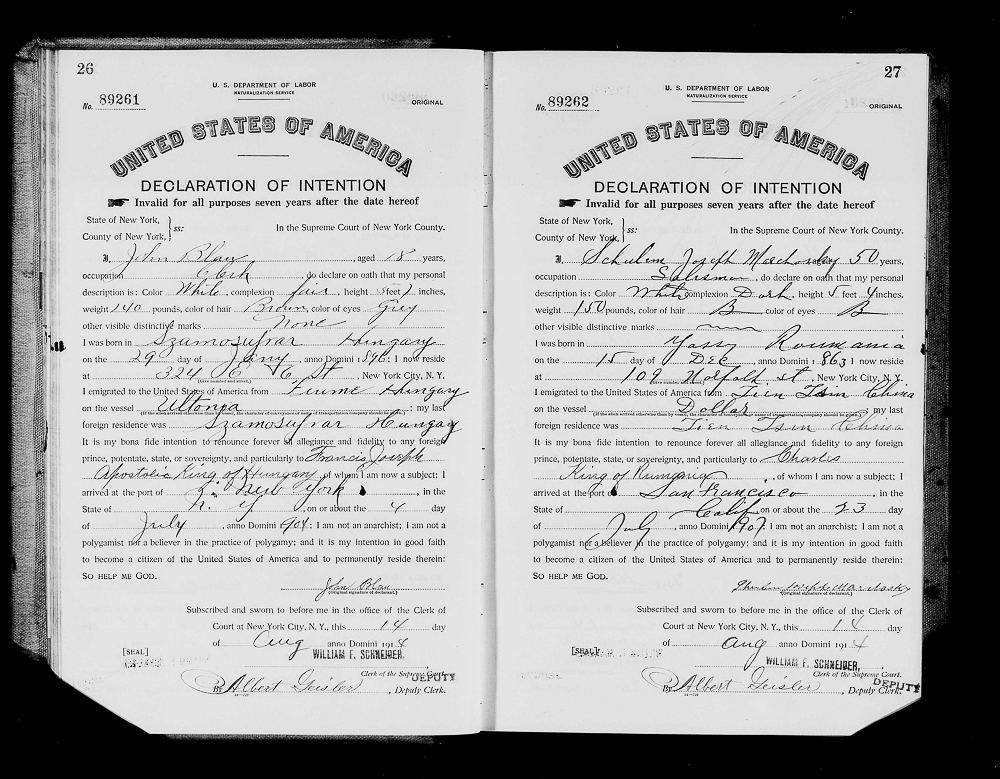 26
U. S. DEPARTMENT OF LABOR
NATURALIZATION SERVICE
No. 89261
ORIGINAL
UNITED STATES OF AMERICA
DECLARATION OF INTENTION
Invalid for all purposes seven years after the date hereof
State of New York,
County of New York, } ss:
In the Supreme Court of New York County.
I, John Blau, aged 18 years,
occupation Clerk, do declare on oath that my personal
description is: Color White, complexion fair, height 5 feet 7 inches,
weight 140 pounds, color of hair Brown, color of eyes Grey
other visible distinctive marks None
I was born in Szamosujvar Hungary
on the 29 day of Jany, anno Domini 1896; I now reside
at 324 E 6 St, New York City, N. Y.
(Give number and street.)
I emigrated to the United States of America from Fiume Hungary
on the vessel Ultonia; my last
(If the alien arrived otherwise than by vessel, the character of conveyance or name of transportation company should be given.)
foreign residence was Szamosujvar Hungary
It is my bona fide intention to renounce forever all allegiance and fidelity to any foreign
prince, potentate, state, or sovereignty, and particularly to Francis Joseph
Apostolic King of Hungary, of whom I am now a subject; I
arrived at the port of New York, in the
State of N. Y, on or about the 4 day
of July, anno Domini 1904; I am not an anarchist; I am not a
polygamist nor a believer in the practice of polygamy; and it is my intention in good faith
to become a citizen of the United States of America and to permanently reside therein:
SO HELP ME GOD.
John Blau
(Original signature of declarant.)
Subscribed and sworn to before me in the office of the Clerk of
Court at New York City, N. Y., this 14 day
of Aug anno Domini 1914
[SEAL]
WILLIAM F. SCHNEIDER,
Clerk of the Supreme Court.
DEPUTY
By Albert Geisler, Deputy Clerk.
27
U. S. DEPARTMENT OF LABOR
NATURALIZATION SERVICE
No. 89262
ORIGINAL
UNITED STATES OF AMERICA
DECLARATION OF INTENTION
Invalid for all purposes seven years after the date hereof
State of New York,
County of New York, } ss:
In the Supreme Court of New York County.
I, Schulim Joseph 50 years,
occupation Salisman, do declare on oath that my personal
description is: Color White complexion Dark, height 5 feet 4 inches,
weight 150 pounds, color of hair B color of eyes B
other visible distinctive marks
I was born in Yassy Roumania
on the 15 day of Dec, anno Domini 1863 I now reside
at 109 Norfolk st, New York City, N. Y.
(Give number and street.)
I emigrated to the United States of America from Tien Tsin China
on the vessel Dollar; my last
(If the alien arrived otherwise than by vessel, the character of conveyance or name of transportation company should be given.)
foreign residence was Tien Tsin China
It is my bona fide intention to renounce forever all allegiance and fidelity to any foreign
prince, potentate, state, or sovereignty, and particularly to Charles
King of Rumania, of whom I am now a subject; I
arrived at the port of San Francisco, in the
State of Calif, on or about the 23 day
of July, anno Domini 1907; I am not an anarchist; I am not a
polygamist nor a believer in the practice of polygamy; and it is my intention in good faith
to become a citizen of the United States of America and to permanently reside therein:
SO HELP ME GOD.
(Original signature of declarant.)
Subscribed and sworn to before me in the office of the Clerk of
Court at New York City, N. Y., this 14 day
of Aug anno Domini 1914
[SEAL]
WILLIAM F. SCHNEIDER,
Clerk of the Supreme Court.
DEPUTY
By Albert Geisler, Deputy Clerk.